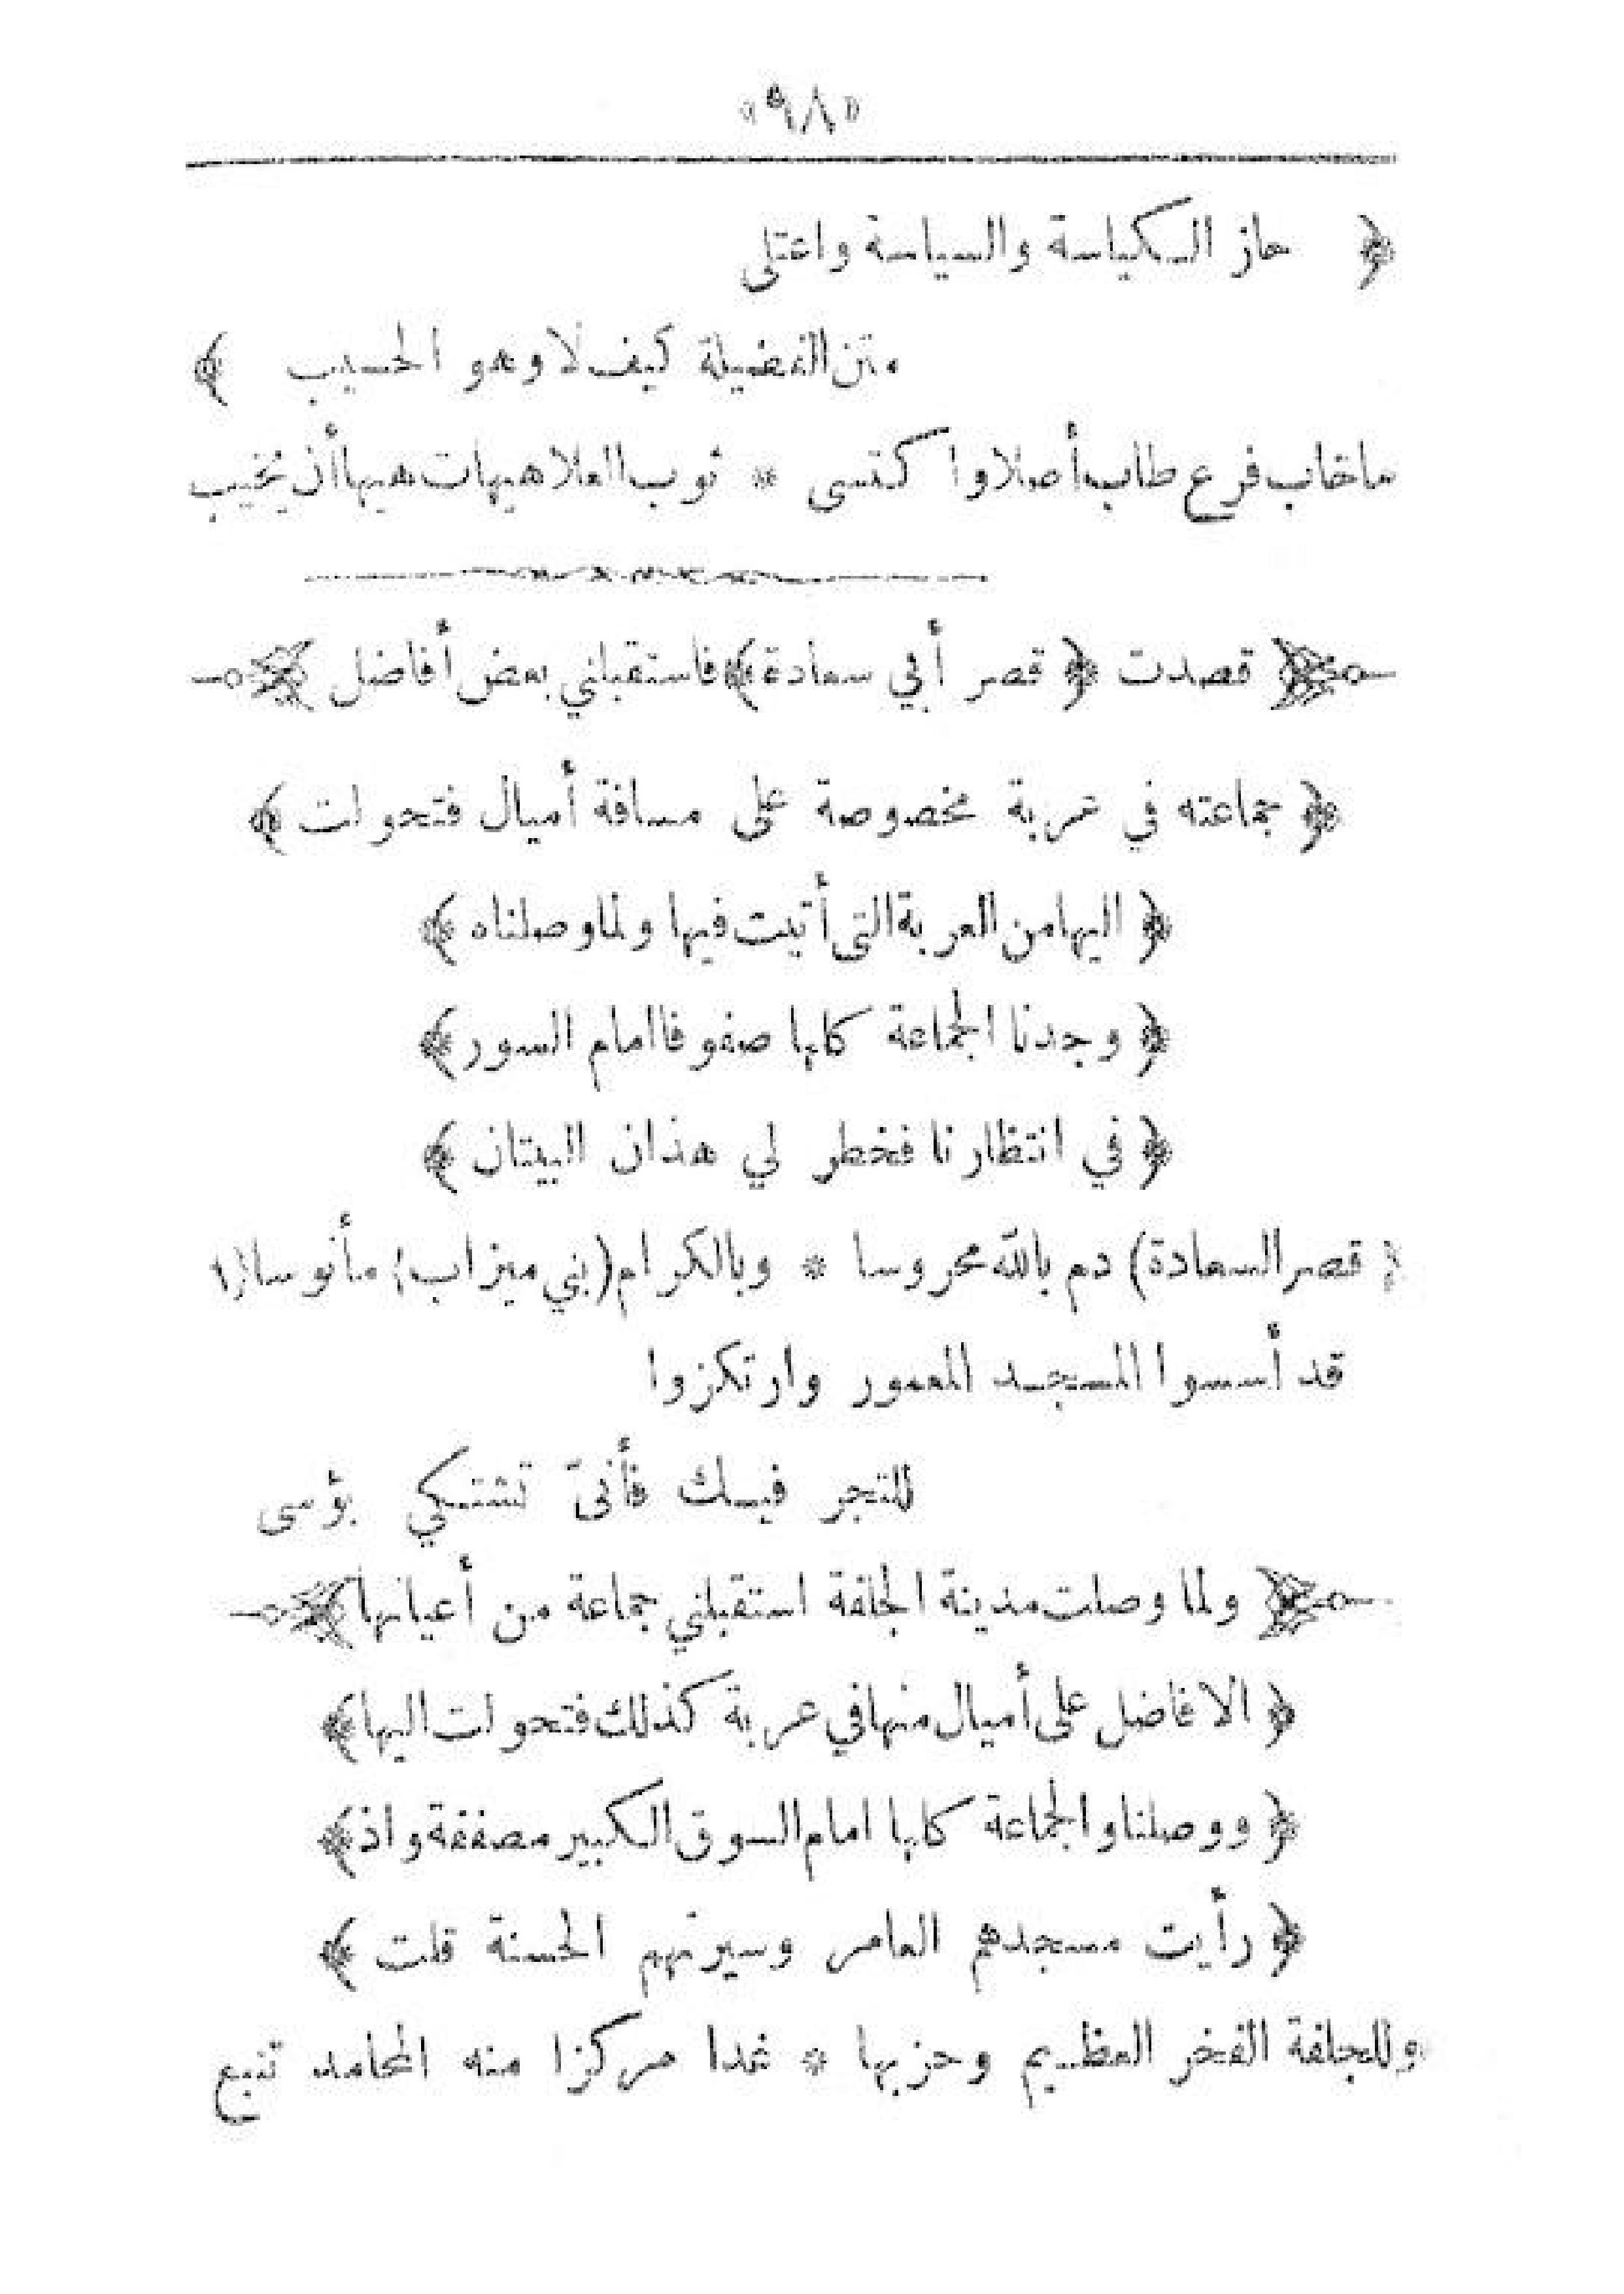 «٩٨»
﴿ حاز الكياسة والسياسة واعتلى
متن الفضيلة كيف لا وهو الحسيب ﴾
ماخاب فرع طاب أصلا واكتسى * ثوب العلا هيهات هيها أن يخيب
﴿ قصدت ﴿ قصر أبي سعادة ﴾ فاستقبلني بعض أفاضل ﴾
﴿ جماعته في عربة مخصوصة على مسافة أميال فتحولت ﴾
﴿ اليها من العربة التي أتيت فيها ولما وصلناه ﴾
﴿ وجدنا الجماعة كلها صفوفا امام السور ﴾
﴿ في انتظارنا فخطر لي هذان البيتان ﴾
( قصر السعادة) دم بالله محروسا * وبالكرام (بني ميزاب) مأنوسا
قد أسسوا المسجد المعمور وارتكزوا
للتجر فيك فأنىّ تشتكي بؤسى
﴿ ولما وصلت مدينة الجلفة استقبلني جماعة من أعيانها ﴾
﴿ الافاضل على أميال منها في عربة كذلك فتحولت اليها ﴾
﴿ ووصلنا والجماعة كلها امام السوق الكبير مصففة واذ ﴾
﴿ رأيت مسجدهم العامر وسيرتهم الحسنة قلت ﴾
وللجلفة الفخر العظيم وحزبها * غدا مركزا منه المحامد تنبع